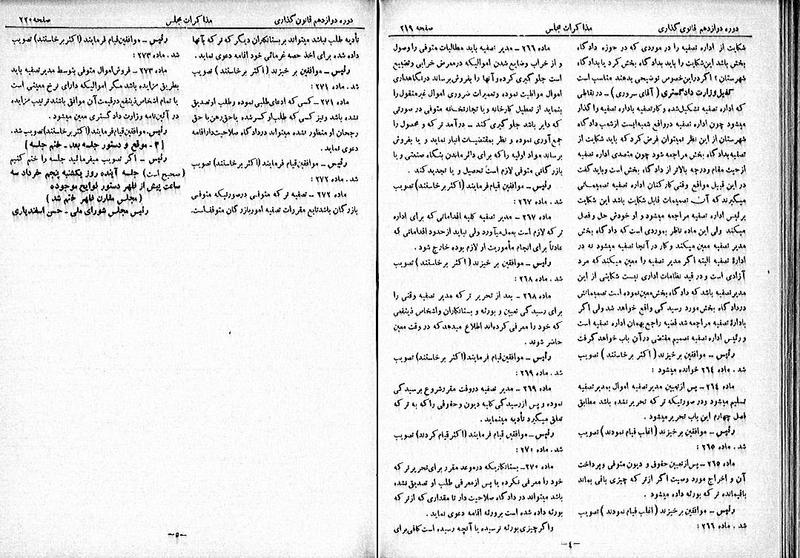 دوره دوازدهم قانون گذاری
مذاکرات مجلس
صفحه ۲۱۹
شکایت از اداره تصفیه را در موردی که در حوزه دادگاه
بخش باشد این شکایت را باید بدادگاه بخش کرد یا بدادگاه
شهرستان؟ اگر در این خصوص توضیحی بدهند مناسب است
کفیل وزارت دادگستری (آقای سروری) - در نقاطی
که اداره تصفیه تشکیل شده و کار تصفیه باداره تصفیه واگذار
میشود چون اداره تصفیه در واقع شعبه ایست از شعب دادگاه
شهرستان از این نظر نمیتوان فرض کرد که باید شکایت از
تصفیه بدادگاه بخش مراجعه شود چون متصدی اداره تصفیه
از حیث مقام و درجه بالاتر از دادگاه بخش است و باید گفت
در این قبیل مواقع وقتی کارکنان اداره تصفیه تصمیماتی
میگیرند که آن تصمیمات قابل شکایت باشد این شکایت
برئیس اداره تصفیه مراجعه میشود و او خودش حل و فصل
میکند ولی این ماده ناظر بموردی است که دادگاه بخش
مدیر تصفیه معین میکند و کار در آنجا تصفیه میشود نه در
ادارۀ تصفیه البته اگر مدیر تصفیه را معین میکند که مرد
آزادی است و در قید نظامات اداری نیست شکایتی از این
مدیر تصفیه باشد که دادگاه بخش معین نموده است تصمیماتش
در دادگاه بخش مورد رسیدگی واقع خواهد شد ولی اگر
باداره تصفیه مراجعه شد قضیه راجع بهمان اداره تصفیه است
و رئیس اداره تصفیه تصمیم مقتضی در آن باب خواهد گرفت
رئیس - موافقین برخیزند (اکثر برخاستند) تصویب
شد. ماده ۲۶۴ خوانده میشود:
ماده ۲۶۴ - پس از تعیین مدیر تصفیه اموال بمدیر تصفیه
تسلیم میشود و در صورتیکه ترکه تحریر نشده باشد مطابق
فصل چهارم این باب تحریر میشود.
رئیس - موافقین برخیزند (اغلب قیام نمودند) تصویب
شد. ماده ۲۶۵:
ماده ۲۶۵ - پس از تعیین حقوق و دیون متوفی و پرداخت
آن و اخراج مورد وصیت اگر از ترکه چیزی باقی بماند
باقیمانده ترکه بورثه داده میشود.
رئیس - موافقین برخیزند (اغلب قیام نمودند) تصویب
شد. ماده ۲۶۶:
ماده ۲۶۶ - مدیر تصفیه باید مطالبات متوفی را وصول
و از خراب و ضایع شدن اموالی که در معرض خرابی و تضییع
است جلوگیری کرده و آنها را بفروش برساند در نگاهداری
اموال مواظبت نموده و تعمیرات ضروری اموال غیر منقول را
بنماید از تعطیل کارخانه و یا تجارتخانه متوفی در صورتی
که دایر باشد جلوگیری کند - درآمد ترکه و محصول را
جمع آوری نموده و نظر بمقتضیات انبار نماید و یا بفروش
برساند مواد اولیه را که برای دائر ماندن بنگاه صنعتی و یا
بازرگانی متوفی لازم است تحصیل و یا تجدید کند.
رئیس - موافقین برخیزند (اکثر برخاستند) تصویب
شد. ماده ۲۶۷:
ماده ۲۶۷ - مدیر تصفیه کلیه اقداماتی که برای اداره
ترکه لازم است بعمل میآورد ولی نباید از حدود اقداماتی که
عادتاً برای انجام مأموریت او لازم بوده خارج شود.
رئیس - موافقین برخیزند (اکثر برخاستند) تصویب
شد. ماده ۲۶۸:
ماده ۲۶۸ - بعد از تحریر ترکه مدیر تصفیه وقتی را
برای رسیدگی تعیین و بورثه و بستانکاران و اشخاص ذینفعی
که خود را معرفی کرده اند اطلاع میدهد که در وقت معین
حاضر شوند.
رئیس - موافقین قیام فرمایند (اکثر برخاستند) تصویب
شد. ماده ۲۶۹:
ماده ۲۶۹ - مدیر تصفیه در وقت مقرر شروع برسیدگی
نموده و پس از رسیدگی کلیه دیون و حقوقی را که به ترکه
تعلق میگیرد تأدیه مینماید.
رئیس - موافقین قیام فرمایند (اکثر قیام کردند) تصویب
شد. ماده ۲۷۰:
ماده ۲۷۰ - بستانکاریکه در موعد مقرر برای تحریر ترکه
خود را معرفی نکرده یا پس از معرفی طلب او تصدیق نشده
باشد میتواند در دادگاه صلاحیت دار تا مقداری که از ترکه
بورثه داده شده است بر ورثه اقامه دعوی نماید.
واگر چیزی بورثه نرسیده یا آنچه رسیده است کافی برای
- ٤ -
دوره دوازدهم قانون گذاری
مذاکرات مجلس
صفحه ۲۲۰
تأدیه طلب نباشد میتواند بر بستانکاران دیگر که ترکه بآنها
داده شده برای اخذ حصه غرمائی خود اقامه دعوی نماید.
رئیس - موافقین برخیزند (اکثر برخاستند) تصویب
شد. ماده ۲۷۱:
ماده ۲۷۱ - کسی که ادعای طلبی نموده و طلب او تصدیق
نشده باشد و نیز کسی که طلب او کسر شده یا حق رهن یا حق
رجحان او منظور نشده میتواند در دادگاه صلاحیت دار اقامه
دعوی نماید.
رئیس - موافقین برخیزند (اکثر برخاستند) تصویب
شد. ماده ۲۷۲:
ماده ۲۷۲ - تصفیه ترکه متوفی در صورتیکه متوفی
بازرگان باشد تابع مقررات تصفیه امور بازرگان متوقف است.
رئیس - موافقین قیام فرمایند (اکثر برخاستند) تصویب
شد. ماده ۲۷۳:
ماده ۲۷۳ - فروش اموال متوفی بتوسط مدیر تصفیه باید
بطریق مزایده باشد مگر اموالیکه دارای نرخ معینی است
یا تمام اشخاص ذینفع در قیمت آن موافق باشند ترتیب مزایده
در آئین نامه وزارت دادگستری معین میشود.
رئیس - موافقین قیام فرمایند (اکثر برخاستند) تصویب شد.
[۳ - موقع و دستور جلسه بعد - ختم جلسه]
رئیس - اگر تصویب میفرمائید جلسه را ختم کنیم
(صحیح است) جلسه آینده روز یکشنبه پنجم خرداد سه
ساعت پیش از ظهر دستور لوایح موجوده
(مجلس مقارن ظهر ختم شد)
رئیس مجلس شورای ملی - حسن اسفندیاری
- ٥ -